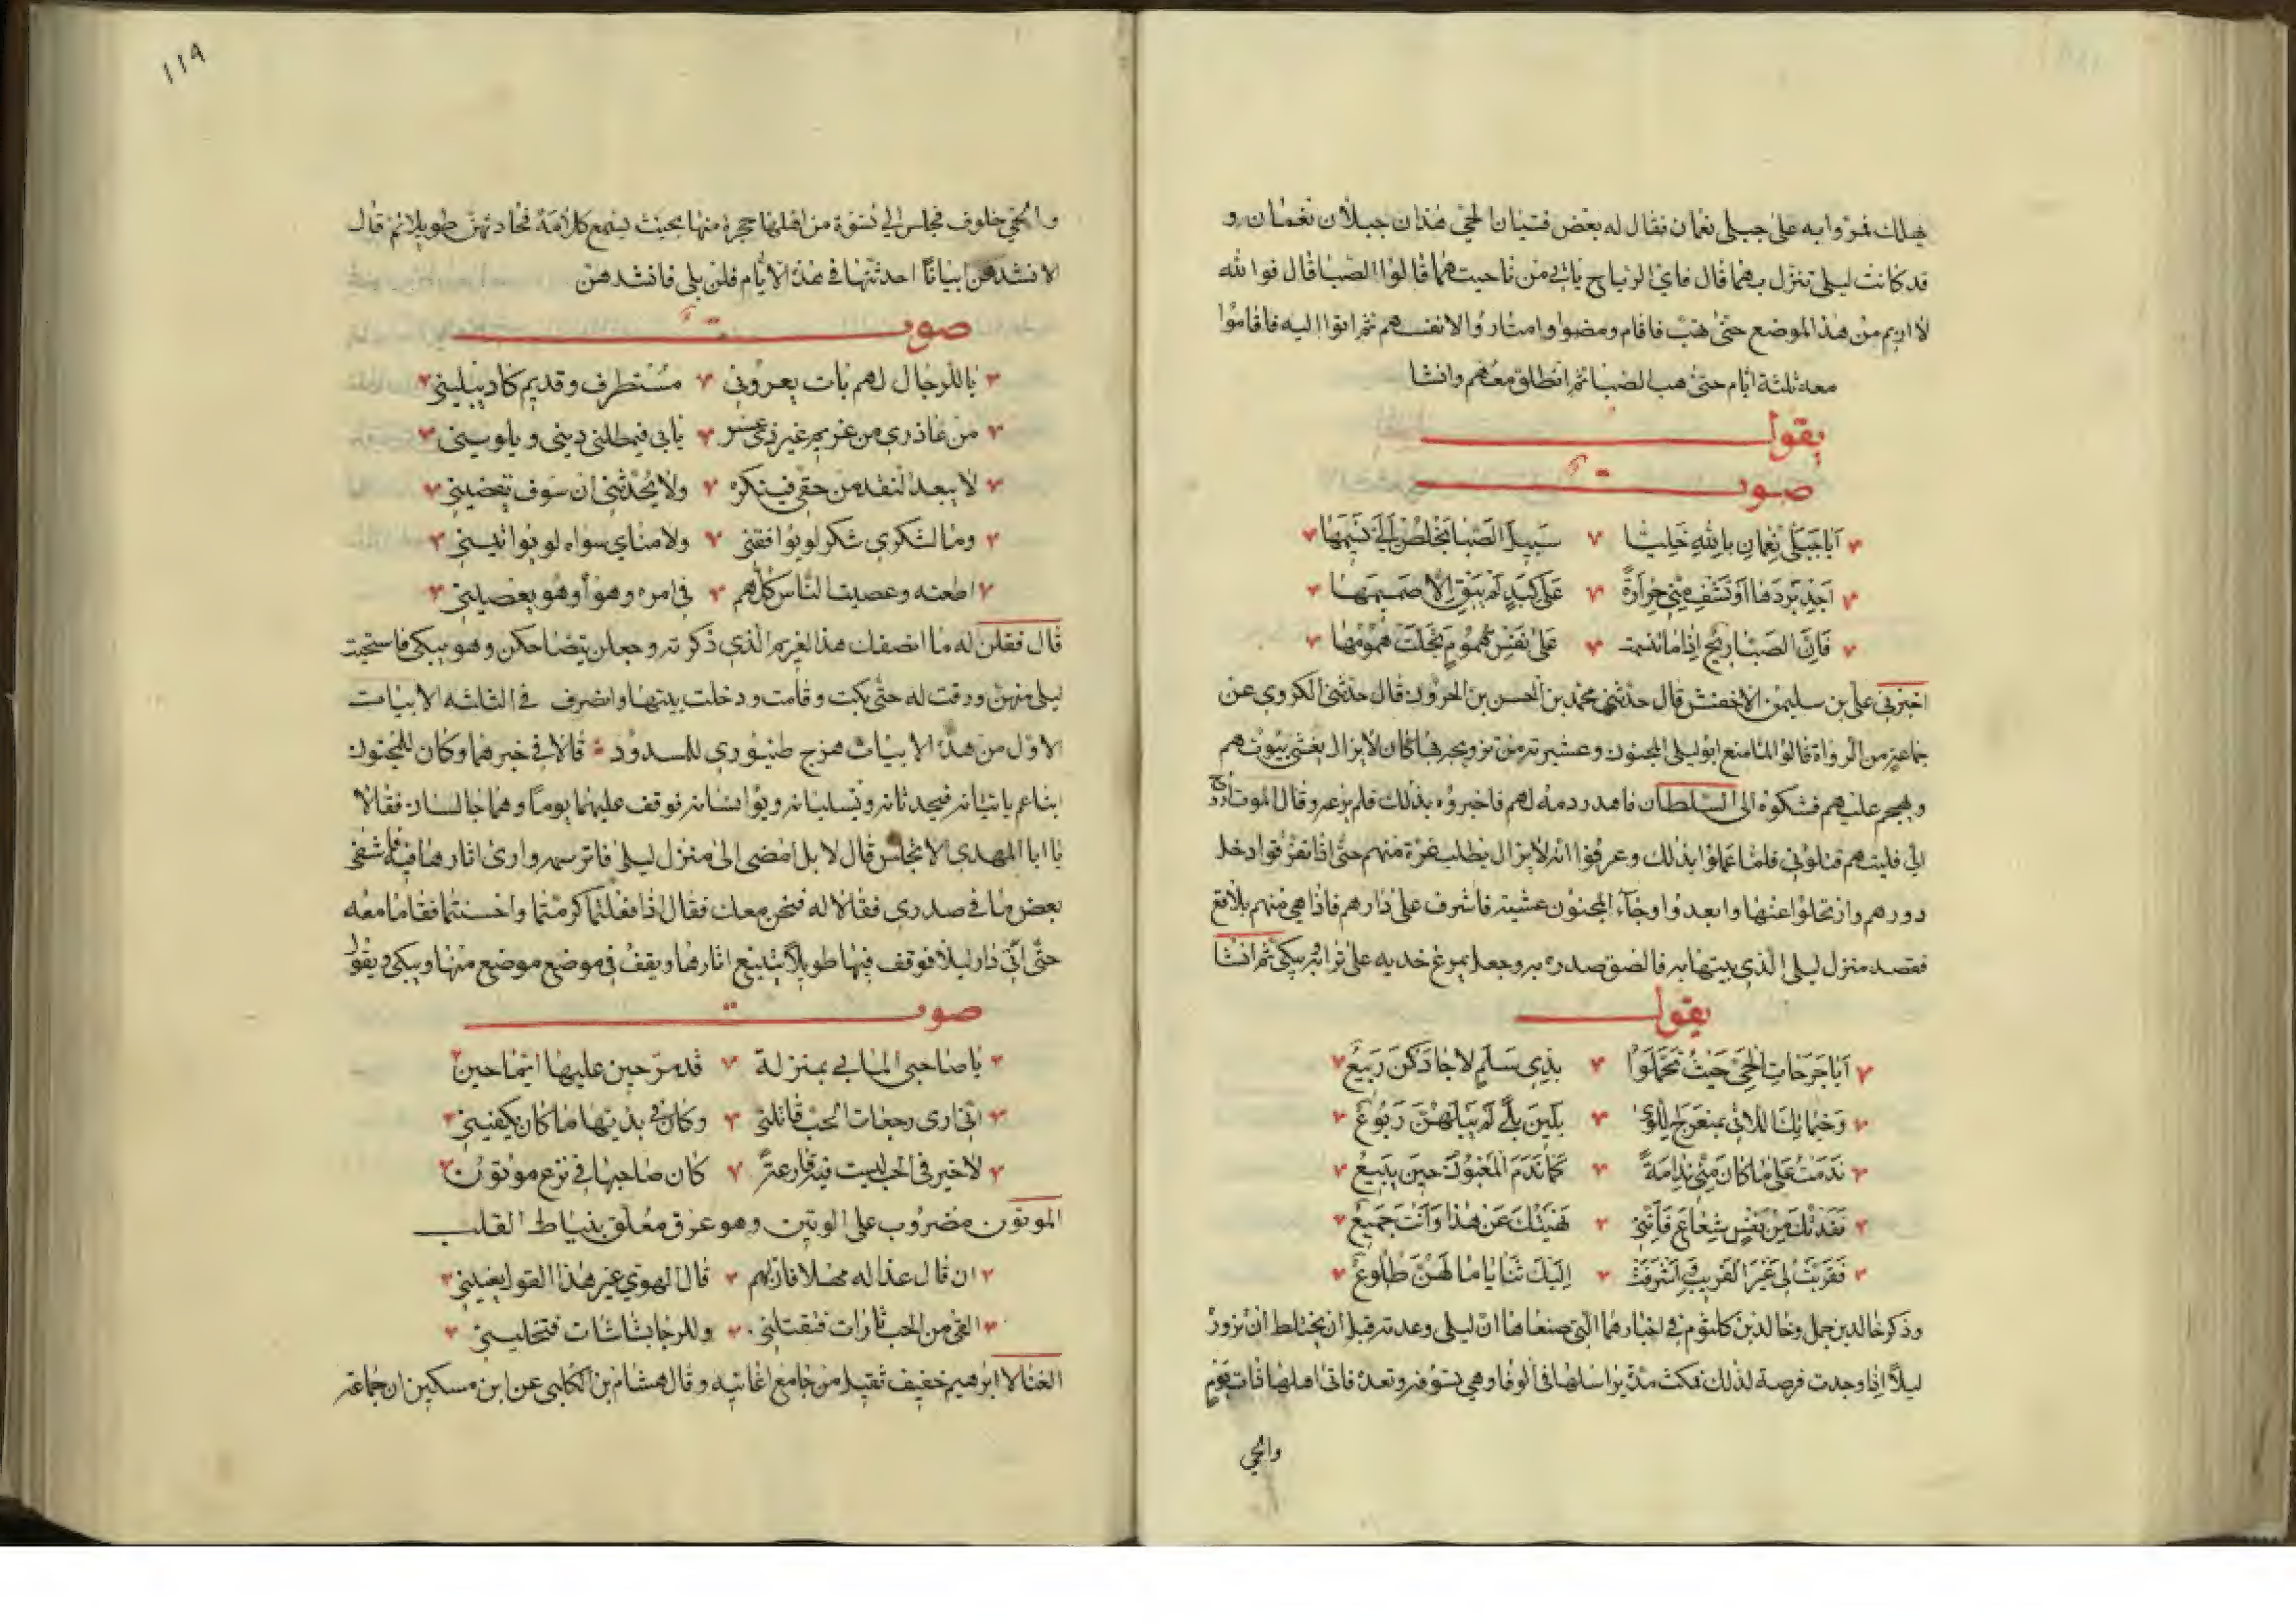 يهلك فمروا به على جبلي نعمان فقال له بعض فتيان الحي هذان جبلان نعمان و
قد كانت ليلى تنزل بهما قال فاي الرياح ياتي من ناحيتهما قالوا الصبا قال فوالله
لا اريم من هذا الموضع حتى تهب فاقام ومضوا وامتاروا لانفسهم ثم اتوا اليه فاقاموا
معه ثلثة ايام حتى هب الصبا ثم انطلق معهم وانشا
يقول
صوت
أيا جبلي نعمان بالله خليا سبيل الصبا يخلص الي نسيمها
أجد بردها او تشف مني حرارة على كبد لم يبق الا صميمها
فان الصبا ريح اذا ما تنسمت على نفس مهموم تجلت همومها
اخبرني علي بن سليمن الاخفش قال حدثني محمد بن الحسن بن الحرون قال حدثني الكروي عن
جماعة من الرواة قالوا لما منع ابو ليلى المجنون وعشيرته من تزويجه بها كان لا يزال يغشى بيوتهم
ويهجم عليهم فشكوه الى السلطان فاهدر دمه لهم فاخبروه بذلك فلم يرعه وقال الموت اروح
الي فليتهم قتلوني فلما علموا بذلك وعرفوا انه لا يزال يطلب غرة منهم حتى اذا تفرقوا دخل
دورهم وارتحلوا عنها وابعدوا وجاء المجنون عشية فاشرف على دارهم فاذا هي منهم بلاقع
فقصد منزل ليلى الذي بيتها به فالصق صدره به وجعل يمرغ خديه على ترابه ويبكي ثم انشا
يقول
أيا جرحات الحي حيث تحملوا بذي سلم لا جادكن ربيع
وخيماتك اللاتي بمنعرج اللوى بلين بلى لم تبلهن ربوع
ندمت على ما كان مني ندامة كما ندم المغبون حين يبيع
فقدتك من نفس شعاع فانني نهيتك عن هذا وانت جميع
فقربت لي غير القريب واشرفت اليك ثنايا ما لهن طلوع
وذكر خالد بن جمل وخالد بن كلثوم في اخبارهما التي صنعاها ان ليلى وعدته قبل ان يختلط ان تزوره
ليلا اذا وجدت فرصة لذلك فمكث مدة يراسلها في الوفا وهي تسوفه وتعده فاتى اهلها ذات يوم
والحي
١١٩
والحي خلوف فجلس الي نسوة من اهلها حجرة منها بحيث يسمع كلامه فحادثهن طويلا ثم قال
الا انشدكن ابياتا احدثتها في هذه الايام قلن بلى فانشدهن
صوت
يا للرجال لهم بات يعروني مستطرف وقديم كاد يبليني
من عاذري من غريم غير ذي عسر يابى فيمطلني ديني ويلويني
لا يبعد النقد من حقي فينكره ولا يحدثني ان سوف يقضيني
وما لشكري شكر لو يوافقني ولا مناي سواه لو يواتيني
اطعته وعصيت الناس كلهم في امره وهواه وهو يعصيني
قال فقلن له ما انصفك هذا الغريم الذي ذكرته وجعلن يتضاحكن وهو يبكي فاستحيت
ليلى منهن ورقت له حتى بكت وقامت ودخلت بيتها وانصرف في الثلثه الابيات
الاول من هذه الابيات هزج طنبوري للمسدود قالا في خبرهما وكان للمجنون
ابنا عم ياتيانه فيحدثانه ويسليانه ويؤانسانه فوقف عليهما يوما وهما جالسان فقالا
يا ابا المهدي الا تجلس قال لا بل امضي الى منزل ليلى فاترسمه وارى اثارها فيه فاشفي
بعض ما في صدري فقالا له فنحن معك فقال اذا فعلتما كرمتما واحسنتما فقاما معه
حتى اتى دار ليلى فوقف فيها طويلا يتتبع اثارها ويقف في موضع موضع منها ويبكي ويقول
صوت
يا صاحبي الما بي بمنزلة قد مر حين عليها ايما حين
اني ارى رجعات الحب قاتلني وكان في بديتها ما كان يكفيني
لا خير في الحب ليست فيه قارعة كان صاحبها في نزع موتون
الموتون مضروب على الوتين وهو عرق معلق بنياط القلب
ان قال عذاله مهلا فلان لهم قال الهوى غير هذا القول يعنيني
القى من الحب تارات فتقتلني وللرجا بشاشات فتحييني
الغنا لابرهيم خفيف ثقيل من جامع اغانيه وقال هشام بن الكلبي عن ابن مسكين ان جماعة